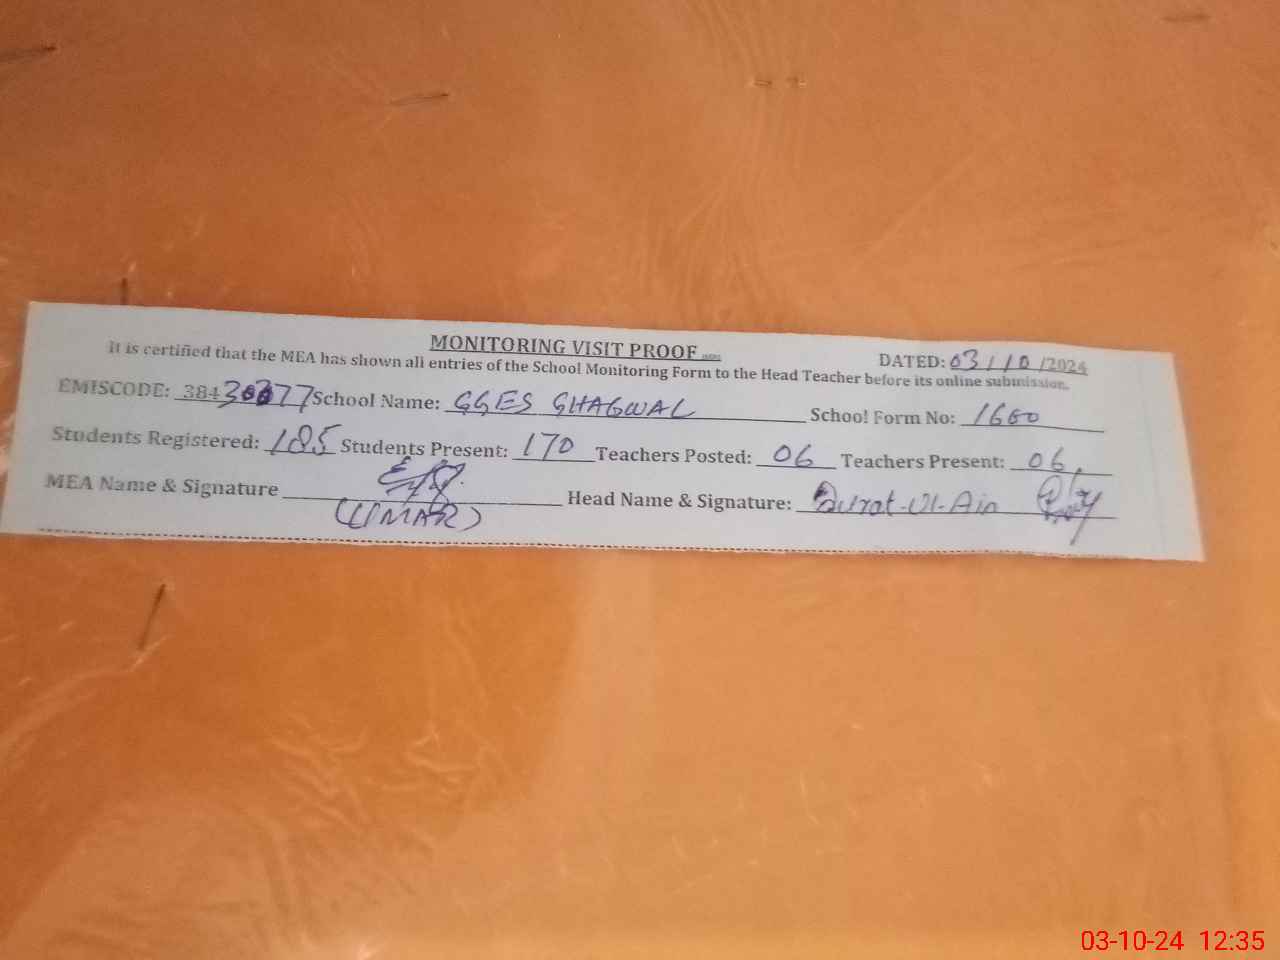 MONITORING VISIT PROOF
DATED: 03/10/2024
It is certified that the MEA has shown all entries of the School Monitoring Form to the Head Teacher before its online submission.
EMISCODE: 38430377 School Name: GGES GHAGWAL School Form No: 1660
Students Registered: 185 Students Present: 170 Teachers Posted: 06 Teachers Present: 06
MEA Name & Signature Head Name & Signature: Qurat-Ul-Ain
(UMAR)
03-10-24 12:35